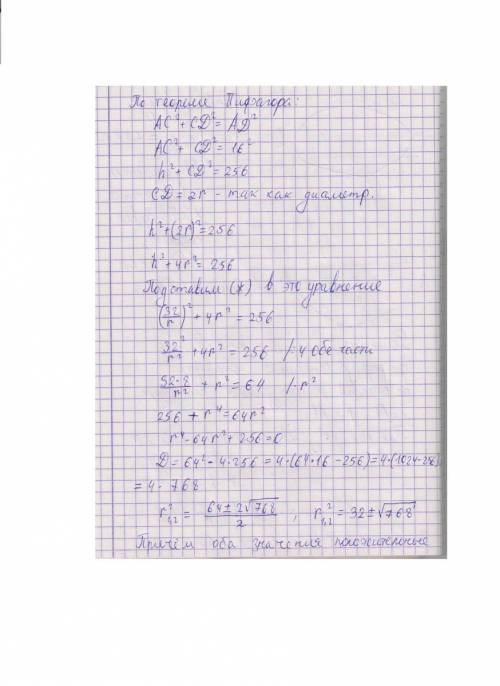 По теореме Пифагора:
AC² + CD² = AD²
AC² + CD² = 16²
h² + CD² = 256
CD = 2r - так как диаметр.
h² + (2r)² = 256
h² + 4r² = 256
Подставим (*) в это уравнение
(32/r)² + 4r² = 256
32²/r² + 4r² = 256 /:4 обе части
32·8/r² + r² = 64 /·r²
256 + r⁴ = 64r²
r⁴ - 64r² + 256 = 0
D = 64² - 4·256 = 4·(64·16 - 256) = 4·(1024-256)
= 4·768
r²₁,₂ = (64 ± 2√768)/2 , r²₁,₂ = 32 ± √768
Причём оба значения положительные